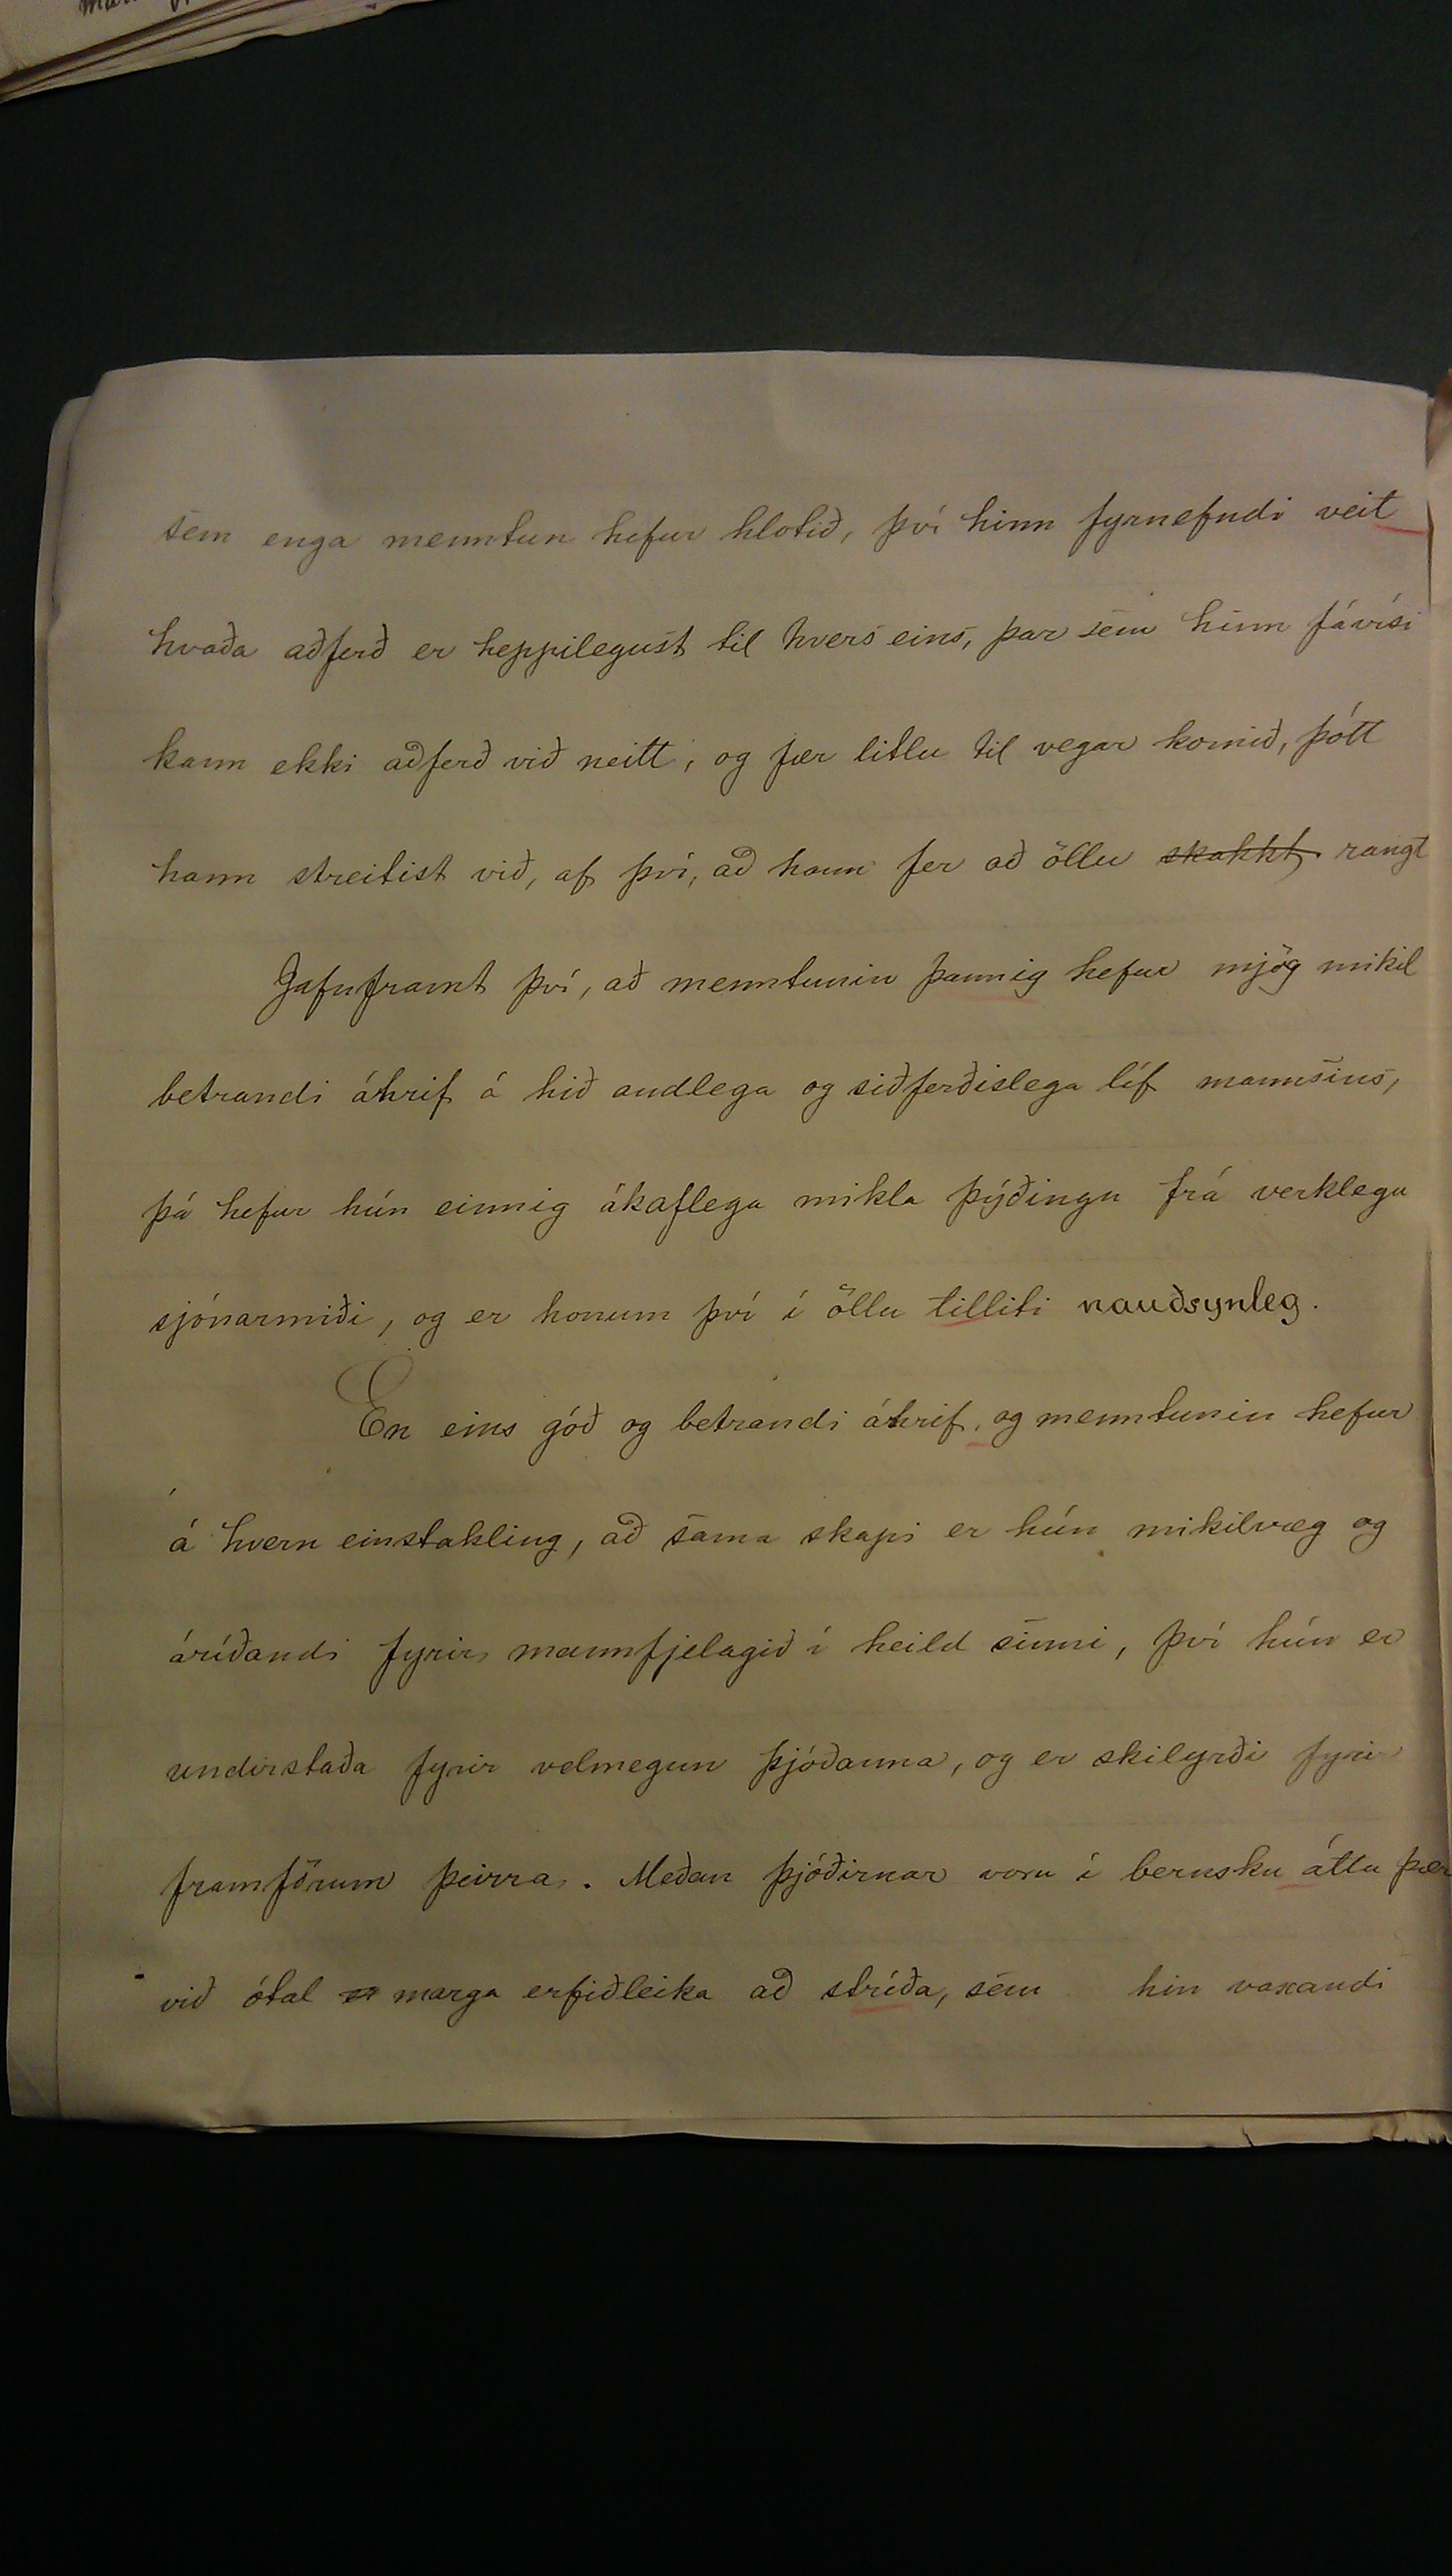 sem enga menntun hefur hlotið, því hinn fyrnefndi veit
hvaða aðferð er heppilegust til hvers eins, þar sem hinn fávísi
kann ekki aðferð við neitt, og fær litlu til vegar komið, þótt
hann streitist við, af því, að hann fer að öllu skakkt rangt
Jafnframt því, að menntunin þannig hefur mjög mikil
betrandi áhrif á hið andlega og siðferðislega líf mannsins,
þá hefur hún einnig ákaflega mikla þýðingu frá verklegu
sjónarmiði, og er honum því í öllu tilliti nauðsynleg.
En eins góð og betrandi áhrif, og menntunin hefur
á hvern einstakling, að sama skapi er hún mikilvæg og
áríðandi fyrir mannfjelagið í heild sinni, því hún er
undirstaða fyrir velmegun þjóðanna, og er skilyrði fyrir
framförum þeirra. Meðan þjóðirnar voru í bernsku áttu þær
við ótal marga erfiðleika að stríða, sem hin vaxandi